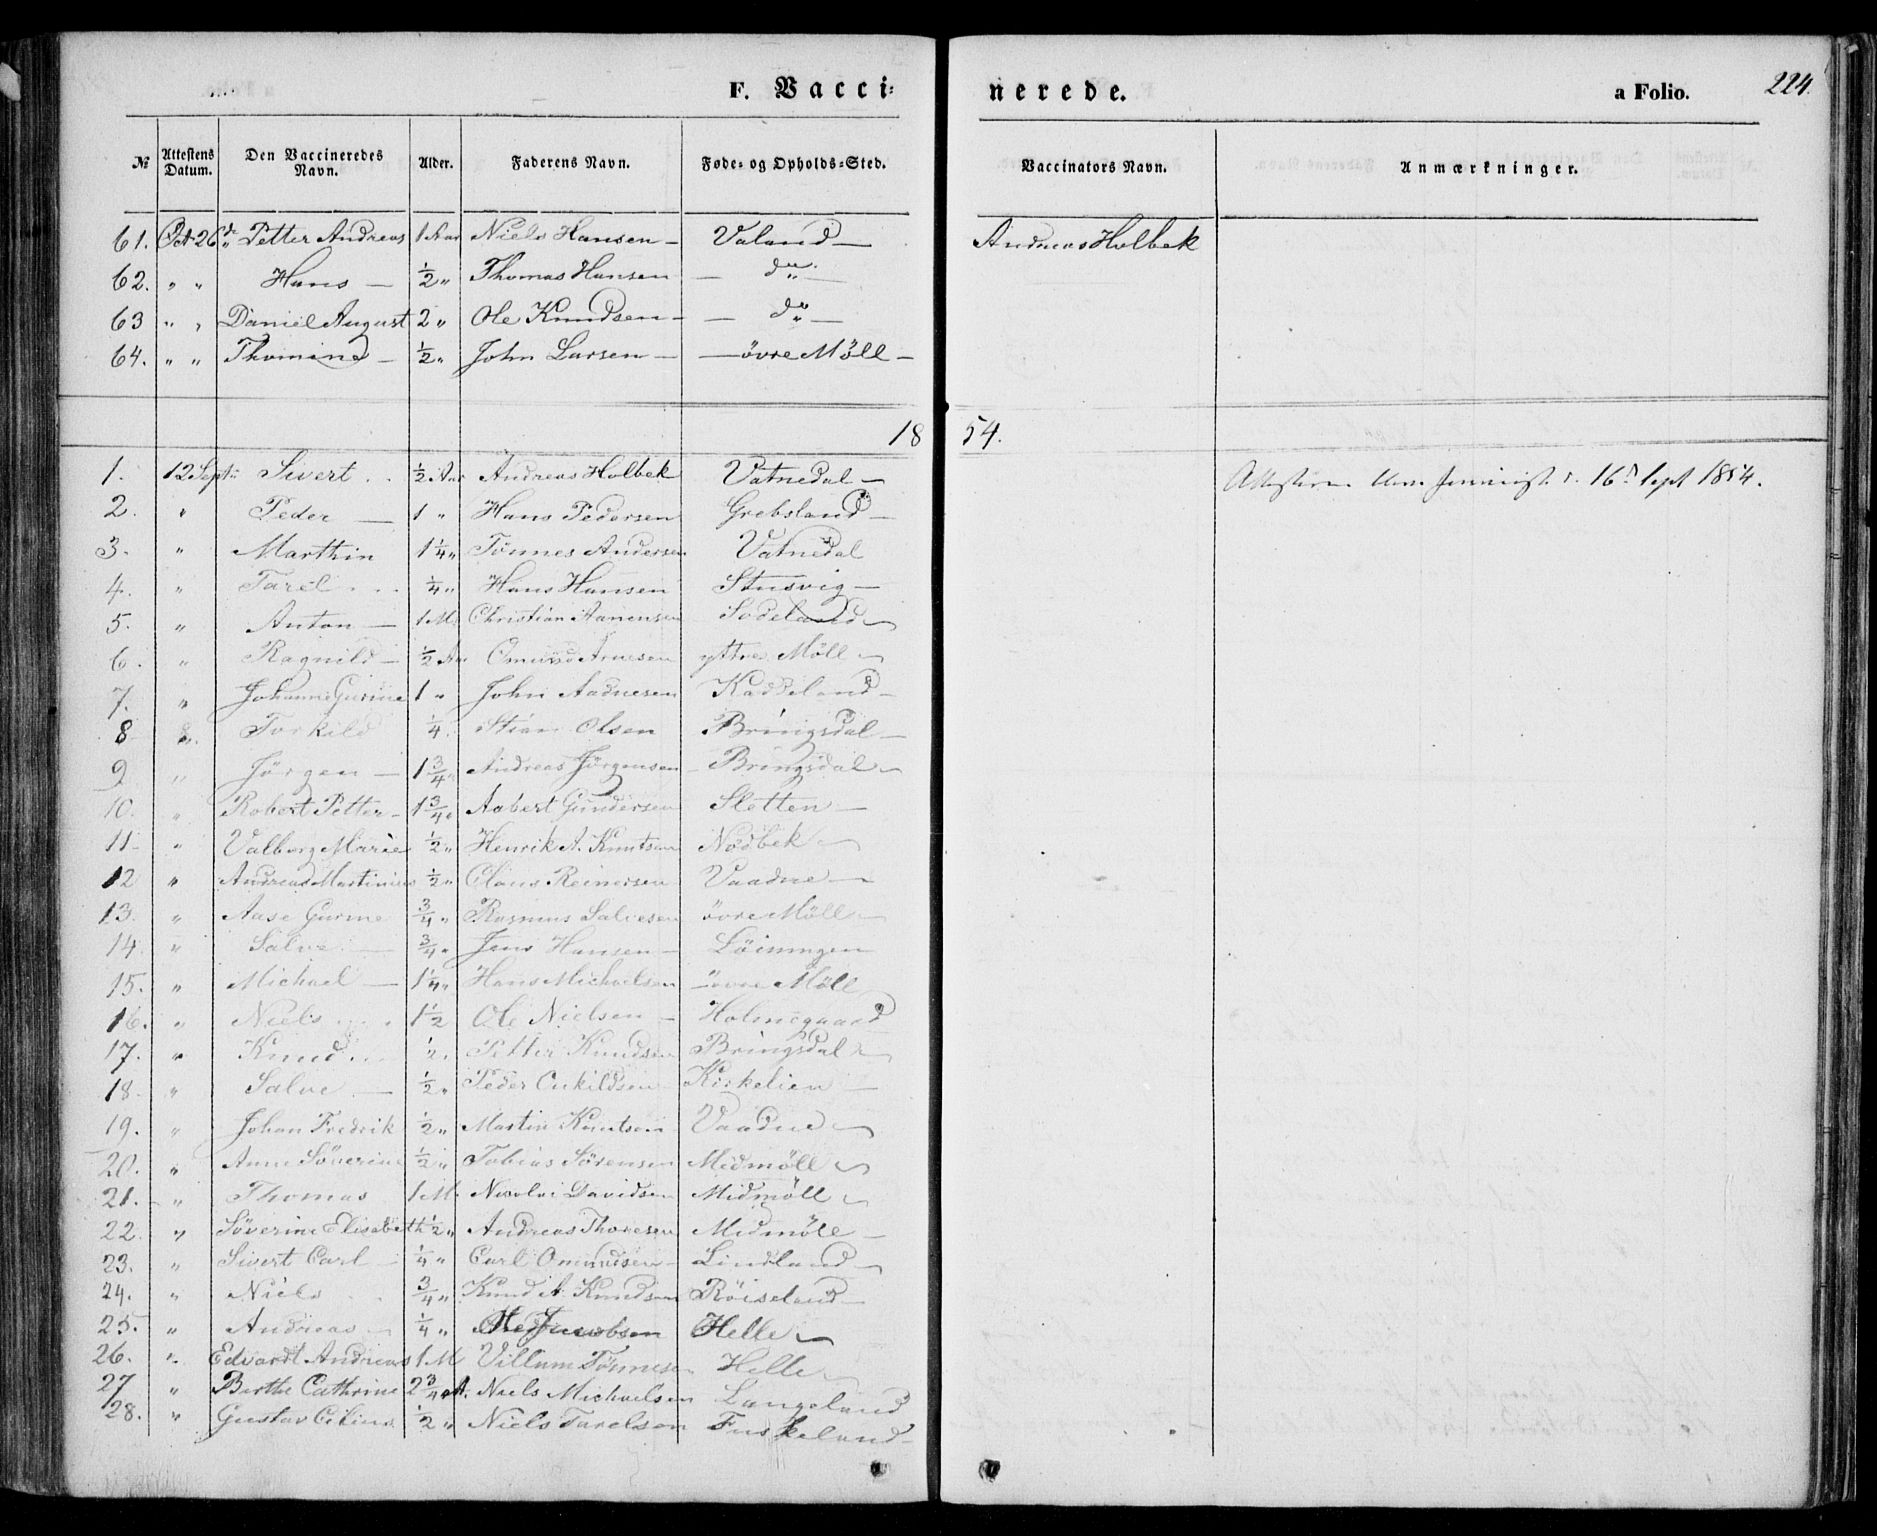 F. Vacci=nerede. a Folio. 224.
№ Attestens Datum. Den Vaccineredes Navn. Alder. Faderens Navn. Føde= og Opholds=Sted. Vaccinators Navn. Anmærkninger.
61. Oct 26d Petter Andreas 1 Aar Niels Hansen – Valand – Andreas Holbek
62. " " Hans – ½ " Thomas Hansen – do –
63 " " Daniel August 2 " Ole Knudsen – – do –
64. " " Thomine – ½ " John Larsen – – övre Möll –
1854.
1. 12 Sept: Sivert ½ Aar Andreas Holbek Vatnedal – 16d Sept 1854.
2. " Peder – 1 " Hans Pedersen Grebsland –
3. " Marthin 1¼ " Tönnes Andersen Vatnedal
4. " Tarel ¼ " Hans Hansen Stusvig –
5. " Anton – 1 M Christian Aanensen Sodeland –
6. " Ragnild – ½ Aar Omund Arnesen yttre Möll –
7. " Johanne Gurine 1 " John Aadnesen Kaddeland –
8 " Torkild ¼ Stian Olsen Bringsdal –
9 " Jörgen – 1¾ " Andreas Jörgensen – Bringsdal –
10. " Robert Petter – 1¾ " Aabert Gundersen Sletten –
11 " Valborg Marie ½ " Henrik A. Knutsen Nodbek –
12 " Andreas Martinius ½ " Claus Reinersen Vaadne –
13. " Aase Gurine ¾ " Rasmus Salvesen övre Möll –
14 " Salve – ¾ " Jens Hansen – Löiningen
15. " Michael – 1¼ " Hans Michaelsen – övre Möll
16. " Niels 1½ Ole Nielsen – Holmegaard
17. " Knud ½ Petter Knudsen Bringsdal –
18. " Salve – ½ " Peder Eskildsen Kirkelien –
19. " Johan Fredrik ½ " Martin Knutsen Vaadne –
20. " Anne Söverine ½ " Tobias Sörensen Midmöll –
21. " Thomas 1 M. Nicolai Davidsen Midmöll –
22. " Söverine Elisabeth ½ " Andreas Thoresen Midmöll –
23. " Sivert Carl ¼ " Carl Omundsen – Lindland –
24. " Niels ¾ " Knud A. Knudsen Röiseland –
25. " Andreas – ¼ " Ole Jacobsen Helle –
26. " Edvardt Andreas 1 M Villum Tönnesen Helle –
27 " Birthe Cathrine 2¾ A. Niels Michaelsen Langeland
28. " Gustav ½ " Niels Tarelsen Fuskeland –